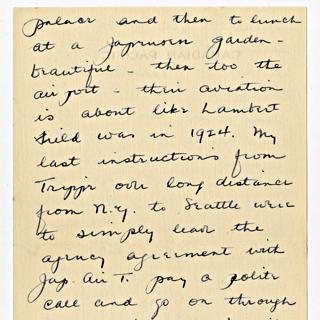 palace and then to lunch
at a Japanese garden -
beautiful - then too the
air port - their aviation
is about like Lambert
Field was in 1924. My
last instructions from
Trippe over long distance
from N.Y. to Seattle were
to simply leave the
agency agreement with
Jap. Air T. pay a polite
call and go on through